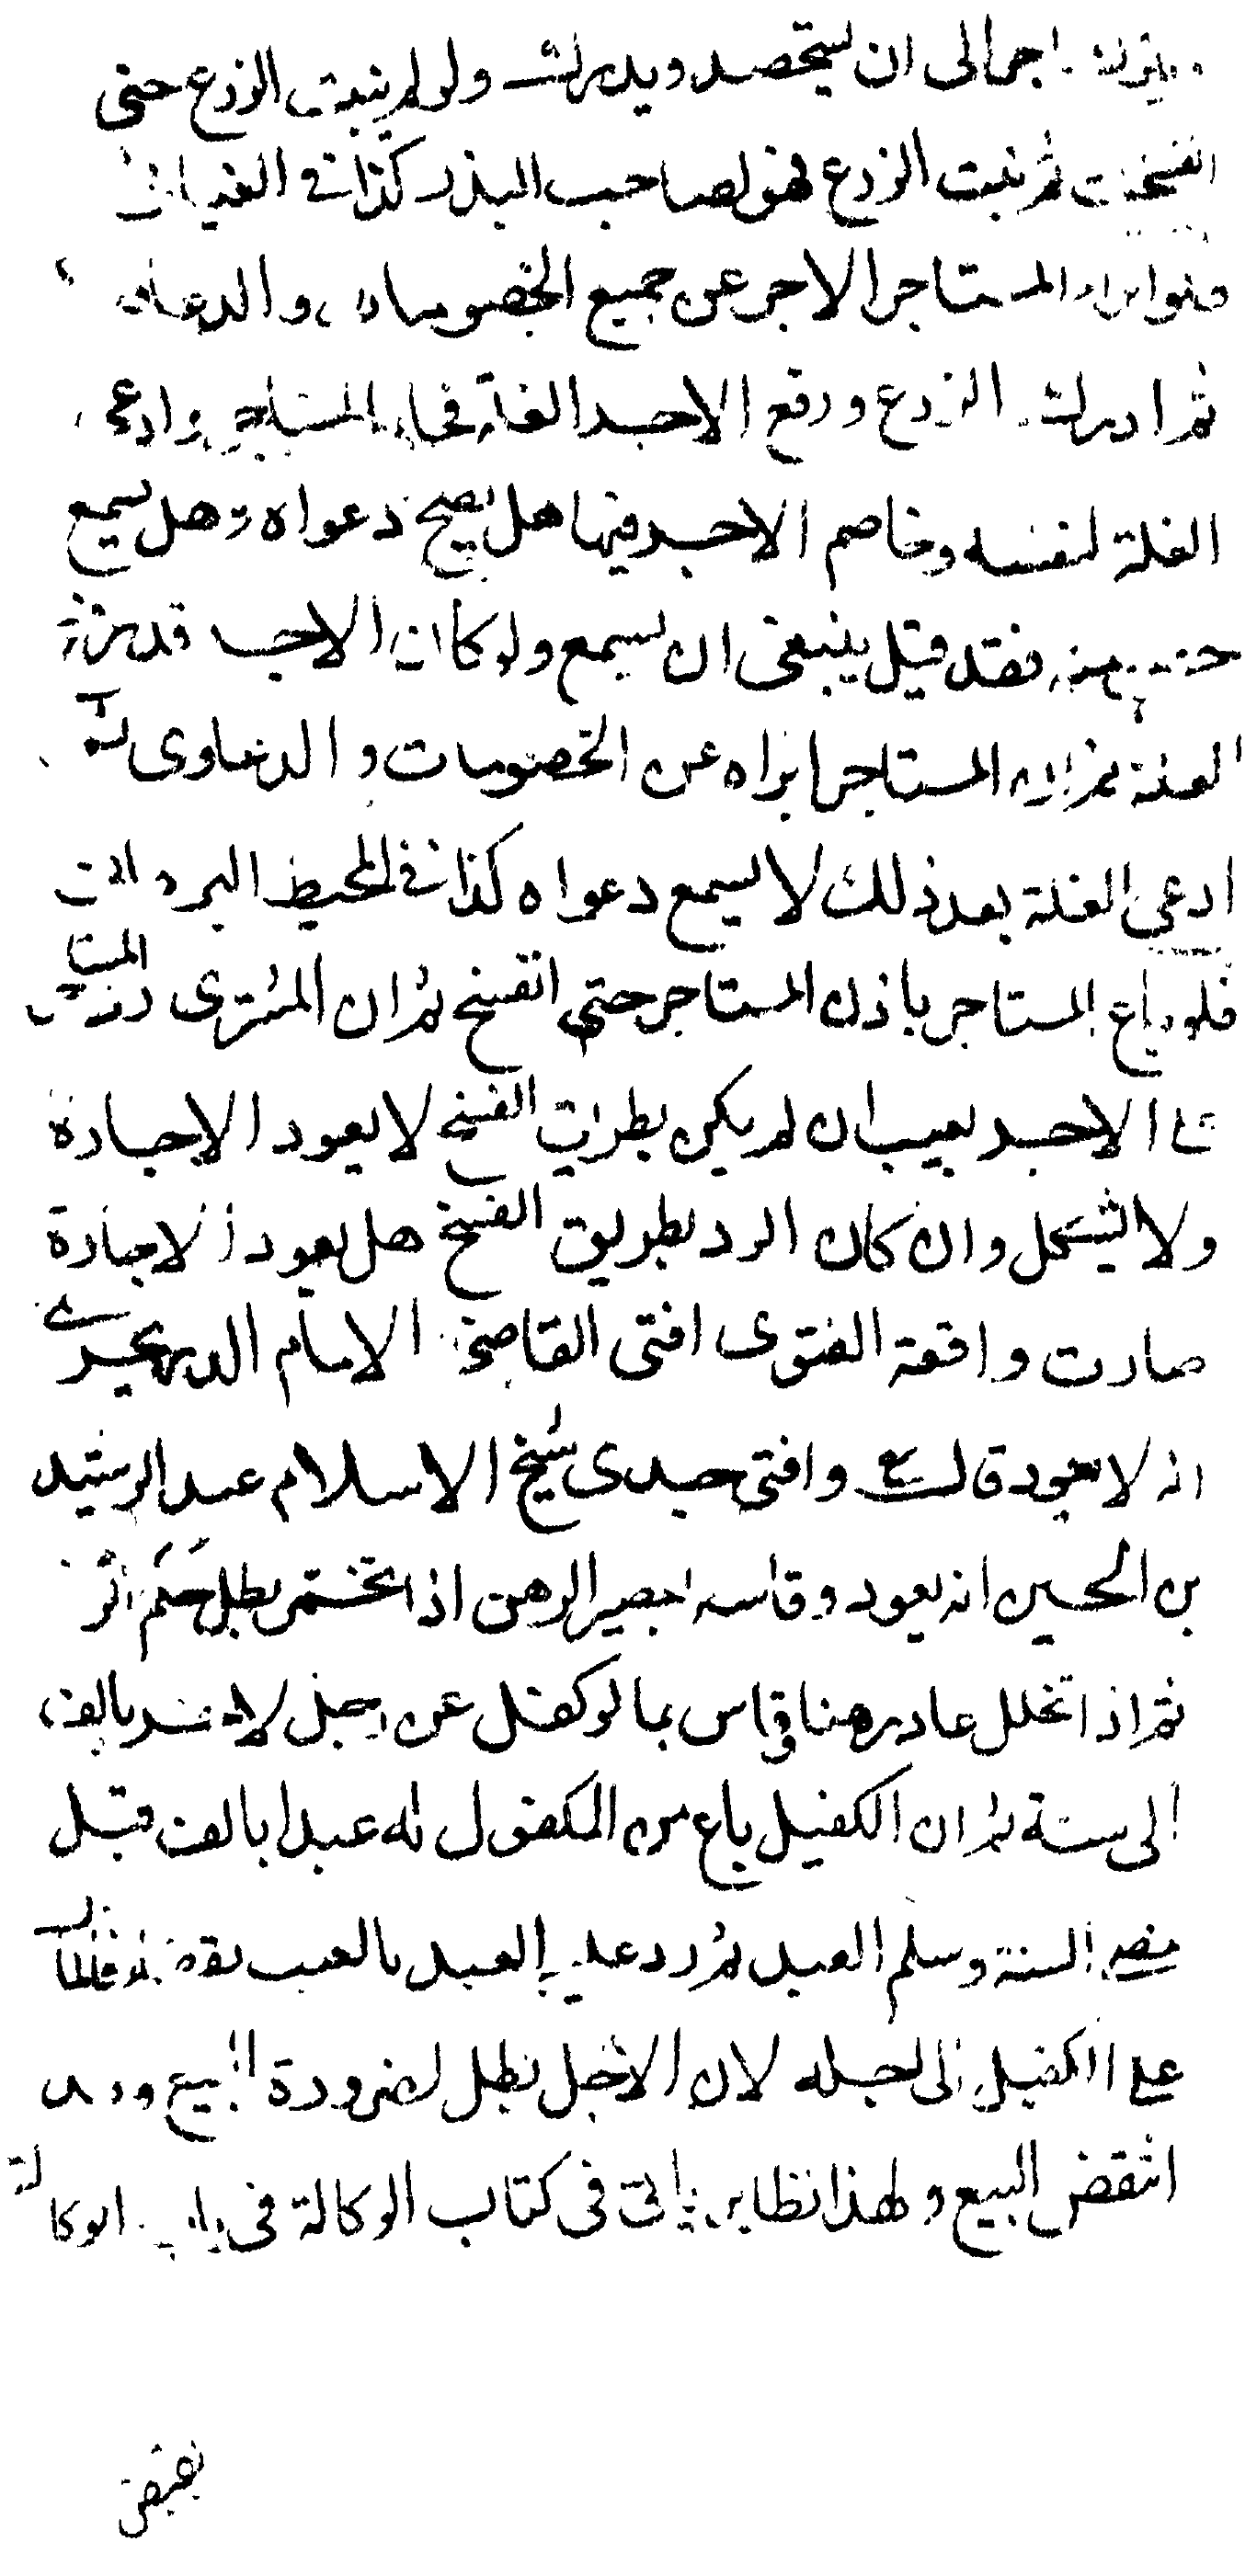 ويترك اجمالى ان يستحصد ويدرك ولو لم ينبت الزرع حتى
انفسخت ثم نبت الزرع فهو لصاحب البذر كذا فى الغياثية
فلو ابراء المستاجر الاجر عن جميع الخصومات والدعاوى
ثم ادرك الزرع ورفع الاجير الغلة فجاء المستاجر وادعى
الغلة لنفسه وخاصم الاجير فيها هل يصح دعواه وهل يسمع
خصومته فقد قيل ينبغى ان يسمع ولو كان الاجير قد رفع
الغلة ثم ان المستاجر ابراه عن الخصومات والدعاوى ثم
ادعى الغلة بعد ذلك لا يسمع دعواه كذا فى المحيط البرهانى
فلو باع المستاجر باذن المستاجر حتى انفسخ ثم ان المشترى رد المستاجر
على الاجير بعيب ان لم يكن بطريق الفسخ لا يعود الاجارة
ولا يشكل وان كان الرد بطريق الفسخ هل يعود الاجارة
صارت واقعة الفتوى افتى القاضى الامام الزرنجرى
انه لا يعود قال رح وافتى جدى شيخ الاسلام عبد الرشيد
بن الحسين انه يعود وقاسه بعصير الرهن اذا تخمر بطل حكم الرهن
ثم اذا تخلل عاد رهنا وقاس بما لو كفل عن رجل لاخر بالف
الى سنة ثم ان الكفيل باع من المكفول له عبدا بالف قبل
مضى السنة وسلم العبد ثم رد عليه العبد بالعيب بقضاء فالمال
على الكفيل الى اجله لان الاجل بطل لضرورة البيع وقد
انتقض البيع ولهذا نظاير ياتى فى كتاب الوكالة فى باب الوكالة
بقبض